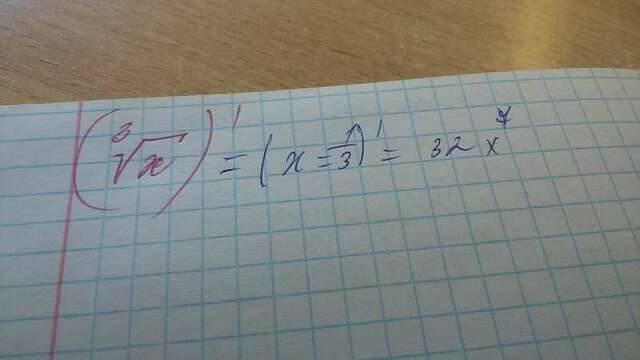 (∛x)' = (x = 1/3)' = 32 x⁷